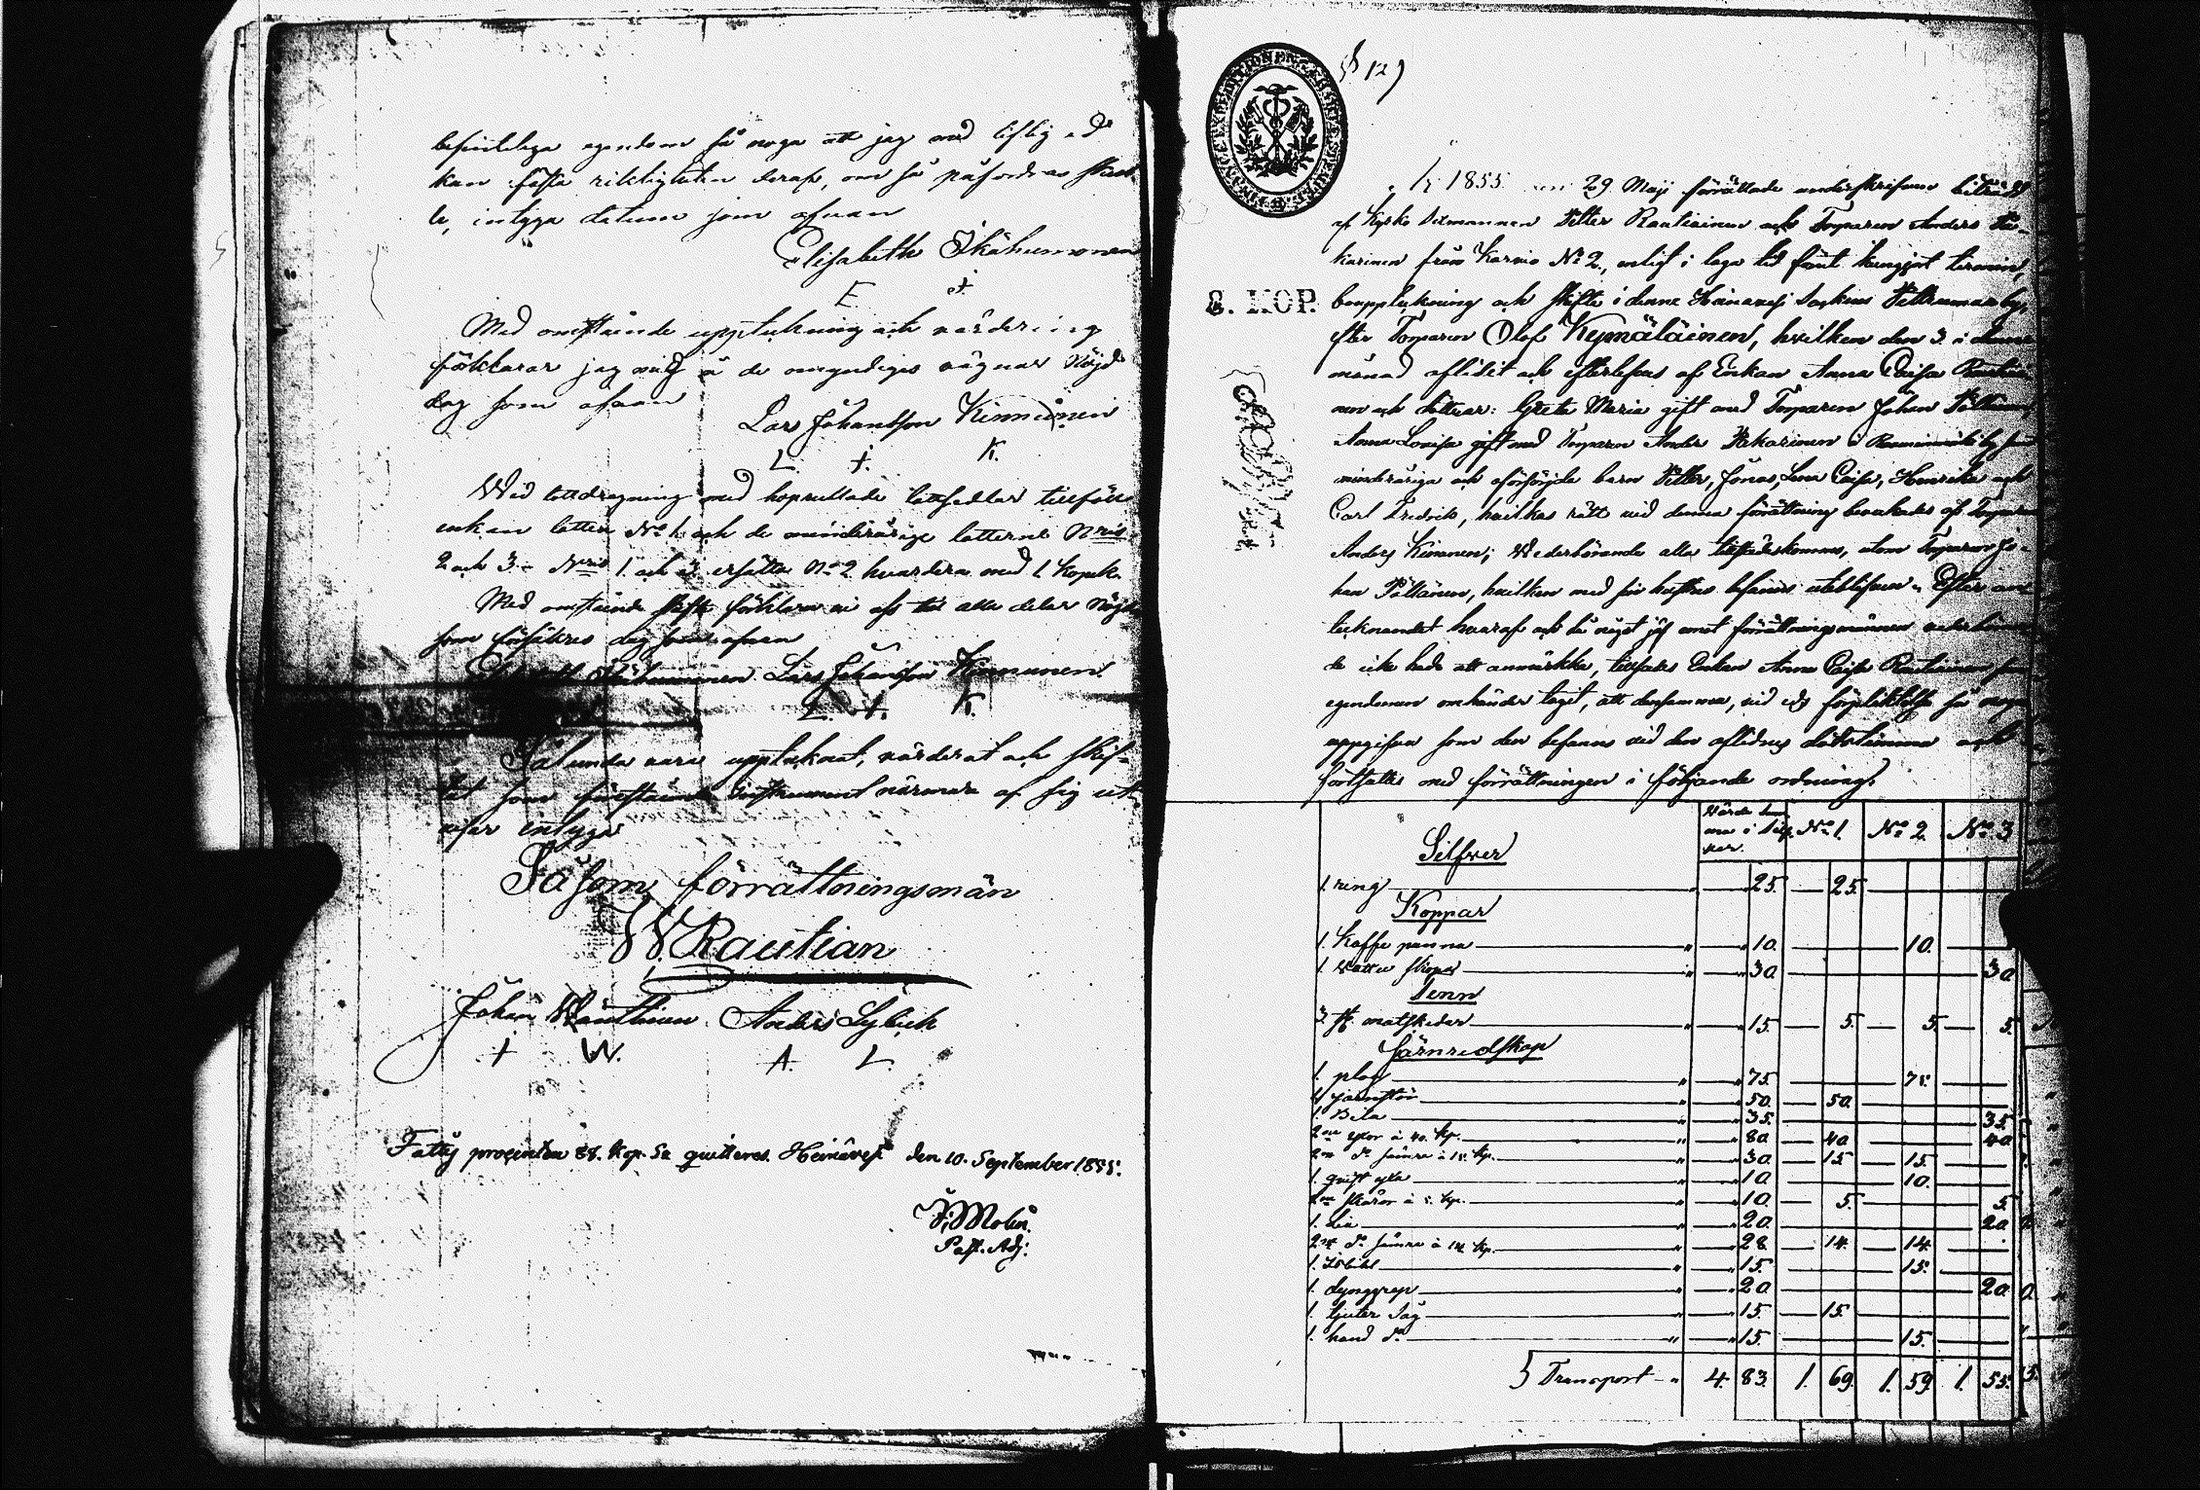 befinteliga egendom så noga att jag med liflig ed
kan fästa riktigheten deraf, om så påfordras skul-
le, intyga datum som ofvan
Elisabeth Ikähemonen
E +
Med omstående uppteckning och värdering
förklarar jag mig å de omyndiges vägnar nöjd
dag som ofvan
Lars Johansson Kinnunen
L. +. K.
Wid lottdragning med hoprullade lottsedlar tillföll
enkan lotten No 1. och de minderårige lotterne Nris
2 och 3. Nris 1 och 3 ersätta No 2 hvardera med 1 kopek.
Med omstående skifte förklara vi oss till alla delar nöjda
som försäkras dag som ofvan
Ikähemonen Lars Johansson Kinnunen
L. +. K.
Sålunda vara upptecknat, värderat och skif-
tat som förestående Instrument närmare af sig ut-
viser intyga
Såsom förrättningsmän
W. Rautian
Johan Anders Lylich
+ W. A. L.
Fattig procenten 88. Kop. Sr quitteras. Heinävesi den 10. September 1855.
Molin
Past. Adj:
§ 12)
8. KOP.
År 1855 den 29 Maji förrättade underskrifven biträdd
af Kyrko Sexmannen Petter Rautiainen och Torparen Anders Pa-
karinen från Karvio No 2., enligt i laga tid förut kungjort termin,
bouppteckning och skifte i denne Heinävesi Sockens by,
efter Torparen Olof Kymäläinen, hvilken den 3 i denne
månad aflidit och efterlefves af Enkan Anna Caisa Rautiai-
nen och döttrar: Greta Maria gift med Torparen Johan Pöllänen
Anna Lovisa gift med Torparen Anders Pakarinen i by samt
minderåriga och oförsörjda barn Petter, Jonas, Lena Caisa, Henrika och
Carl Fredrik, hvilkas rätt vid denna förrättning bevakades af Torparen
Anders Kinnunen; Wederbörande alla tillstädeskomne, utom Torparen Jo-
han Pöllänen, hvilken med sin hustru befanns uteblifven. Efter
tecknandet hvaraf och då något jäf emot förrättningsmännen vederböran-
de icke hade att anmärka, tillsades Enkan Anna Caisa Rautiainen som
egendomen omhänder tagit, att densamma, vid eds förpliktelse så noga
uppgifva som den befanns vid den aflidnes dödstimma och
fortsattes med förrättningen i följande ordning:
Värde Sum-
ma i Silf-
ver. No 1. No 2. No 3
Silfver
1. ring " 25. 25.
Koppar
1. Kaffe panna " 10. 10.
1. Watten skopa " 30. 30
Tenn
3. st. matskedar " 15. 5. 5. 5.
Järnredskap
1. plog " 75. 75.
1. järnstör " 50. 50.
1. Bila " 35. 35.
2ne yxor à 40. kp. " 80 40 40
2ne do sämre à 15. kp. " 30 15 15.
1. yxa " 10 10.
2ne skäror à 5. kp. " 10. 5. 5.
1. Lia " 20. 20
2ne do sämre à 14. kp. " 28 14. 14.
1. " 15. 15.
1. dynggrep " 20 20
1. Såg " 15. 15.
1. hand do " 15. 15.
Transport " 4. 83. 1. 69. 1. 59. 1. 55.